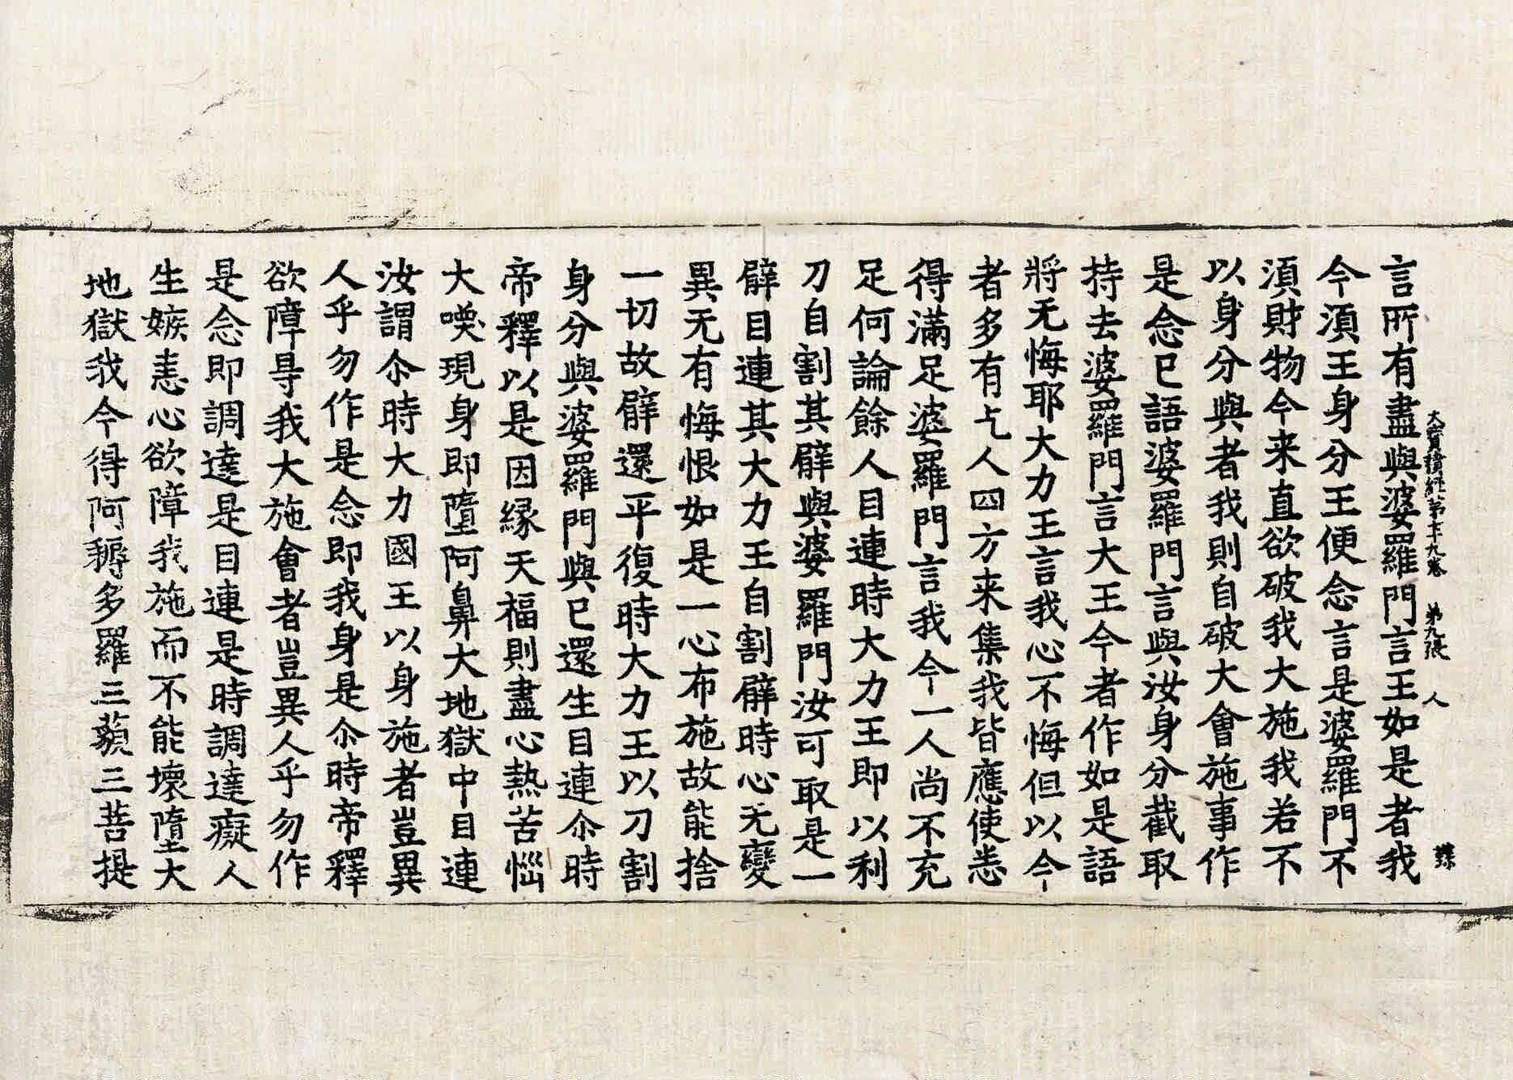 大寶積經第七十九卷 第九張 人
言所有盡與婆羅門言王如是者我
今湏王身分王便念言是婆羅門不
湏財物今来直欲破我大施我若不
以身分與者我則自破大會施事作
是念已語婆羅門言與汝身分截取
持去婆羅門言大王今者作如是語
將无悔耶大力王言我心不悔但以今
者多有乞人四方来集我皆應使悉
得滿足婆羅門言我今一人尚不充
足何論餘人目連時大力王即以利
刀自割其臂與婆羅門汝可取是一
臂目連其大力王自割臂時心无變
異无有悔恨如是一心布施故能捨
一切故臂還平復時大力王以刀割
身分與婆羅門與已還生目連尒時
帝釋以是因縁天福則盡心熱苦惱
大喚現身即墮阿鼻大地獄中目連
汝謂尒時大力國王以身施者豈異
人乎勿作是念即我身是尒時帝釋
欲障㝵我大施會者豈異人乎勿作
是念即調達是目連是時調達癡人
生嫉恚心欲障我施而不能壞墮大
地獄我今得阿耨多羅三藐三菩提